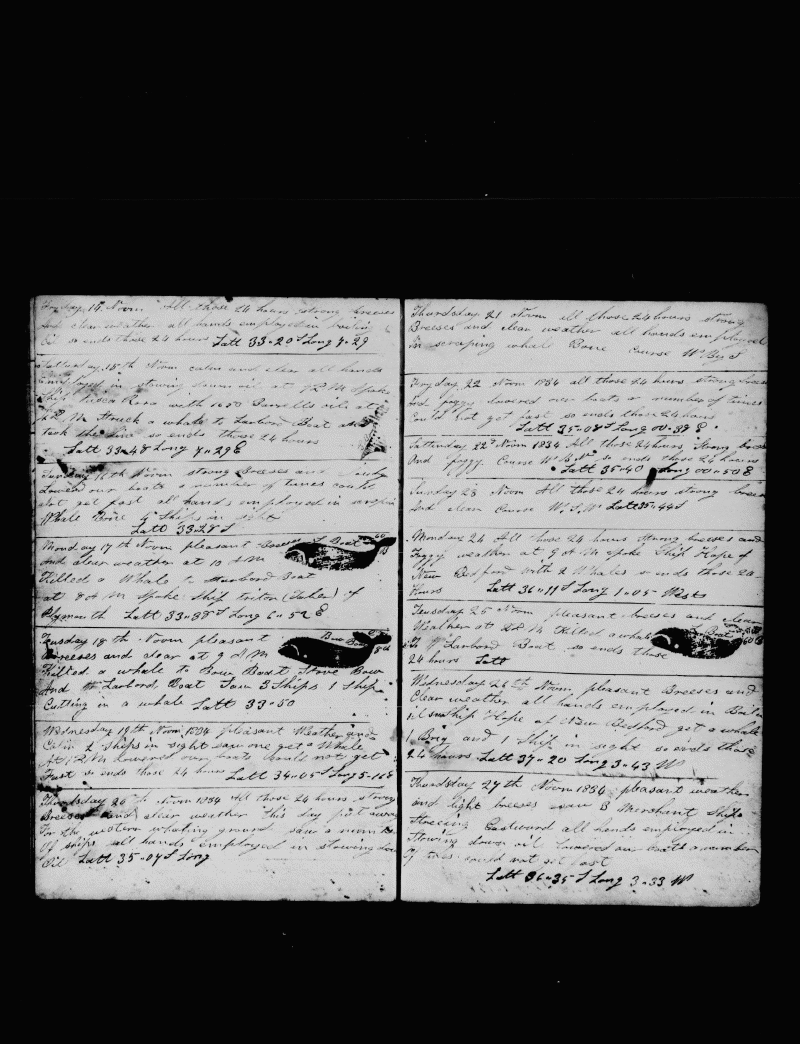 Fryday 14 Novm All those 24 hours strong breeses
And clear weather all hands employed in boiling
Oil so ends those 24 hours Latt 33„20 S Long 4„29
Satturday 15th Novm calm and clear all hands
Employed in stowing down oil at 7 P M spoke
Ship with 1650 Barrells oil at
P M Struck a whale to Larbord Boat
took the line so ends those 24 hours
Latt 33„48 Long 4„29 E
Sunday 16th Novm strong Breeses and
Lowerd our boats a number of times could
Not get fast all hands employed in scrapin
Whale Bone 4 Ships in sight
Latt 33„28 S
Monday 17th Novm pleasant Breeses
And clear weather at 10 A M
Killed a Whale to Boat
at 8 A M spoke Ship Triton of
Plymouth Latt 33„38 S Long 6„52 E
S Boat 60
Tuesday 18th Novm pleasant
Breeses and clear at 9 A M
Killed a whale to Bow Boat Stove Bow
And Larbord Boat Saw 3 Ships 1 Ship
Cutting in a whale Latt 33„50
Bow Boat
Wednesday 19th Novm 1834 pleasant Weather and
Calm 2 Ships in sight saw one get a Whale
At P M lowered our boats could not get
Fast so ends those 24 hours Latt 34„05 S Long 5„14 E
Thursday 20th Novm 1834 All those 24 hours strong
Breeses and clear weather This day put away
For the western whaling ground saw a num
Of ships all hands employed in stowing down
Oil Latt 35„04 S Long
Thursday 21 Novm all those 24 hours strong
Breeses and clear weather all hands employed
In scraping whale Bone Course W By S
Fryday 22 Novm 1834 all those 24 hours strong breeses
And foggy lowered our boats a number of times
Could not get fast so ends those 24 hours
Latt 35„08 S Long 00„38 E
Satturday 22d Novm 1834 All those 24 hours strong breeses
And foggy Course W so ends those 24 hours
Latt 35„40 Long 00„50 E
Sunday 23 Novm All those 24 hours strong breeses
And clear Course W. S. W Latt 35„44 S
Monday 24 All those 24 hours strong breeses and
Foggy weather at 9 A M spoke Ship Hope of
New Bedford with 2 Whales so ends those 24
Hours Latt 36„11 S Long 1„05 West
Teusday 25 Novm pleasant breeses and clear
Weather at M Killed a whale
To Larbord Boat so ends those
24 hours Latt
Boat
Wednesday 26th Novm pleasant Breeses and
Clear weather all hands employed in Boiling
Oil saw Ship Hope of New Bedford get a whale
1 Brig and 1 Ship in sight so ends those
24 hours Latt 37„20 Long 3„43 W
Thursday 27th Novm 1834 pleasant weather
And light breeses saw 3 Merchant Ships
Steering Eastward all hands employed in
Stowing down oil lowered our boats a number
Of times could not get fast
Latt 36„35 S Long 3„33 W